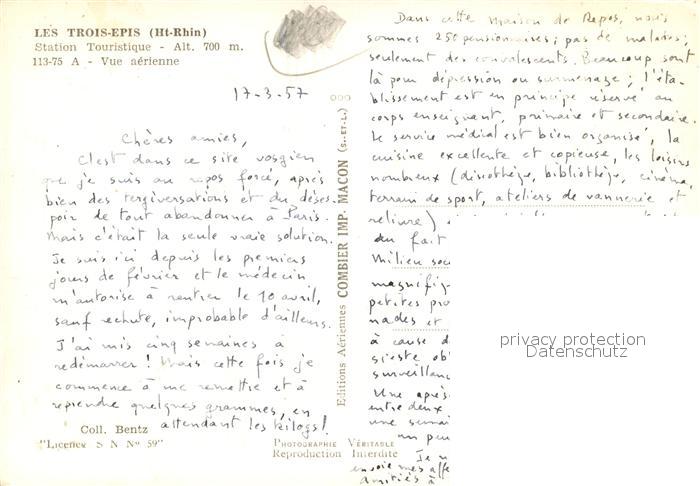 LES TROIS-EPIS (Ht-Rhin)
Station Touristique - Alt. 700 m.
113-75 A - Vue aérienne
17-3-57
Chères amies,
C'est dans ce site vosgien
que je suis au repos forcé, après
bien des tergiversations et du déses-
poir de tout abandonner à Paris.
Mais c'était la seule vraie solution.
Je suis ici depuis les premiers
jours de février et le médecin
m'autorise à rentrer le 10 avril,
sauf rechute, improbable d'ailleurs.
J'ai mis cinq semaines à
redémarrer ! Mais cette fois je
commence à me remettre et à
reprendre quelques grammes, en
attendant les kilogs !
Coll. Bentz
"Licence S N N° 59"
PHOTOGRAPHIE VÉRITABLE
Reproduction Interdite
Editions Aériennes COMBIER IMP. MACON (S.-ET-L.)
Dans cette Maison de Repos, nous
sommes 250 pensionnaires ; pas de malades ;
seulement des convalescents. Beaucoup sont
là pour dépression ou surmenage ; l'éta-
blissement est en principe réservé au
corps enseignant, primaire et secondaire.
Le service médical est bien organisé, la
cuisine excellente et copieuse, les loisirs
nombreux (discothèque, bibliothèque, cinéma,
terrain de sport, ateliers de vannerie et
reliure)
du fait
Milieu soc
magnifiq
petites pro
nades et
à cause d
sieste ob
surveillanc
Une après
entre deux
une semai
un peu
Je
envoie mes affe
amitiés à
privacy protection
Datenschutz